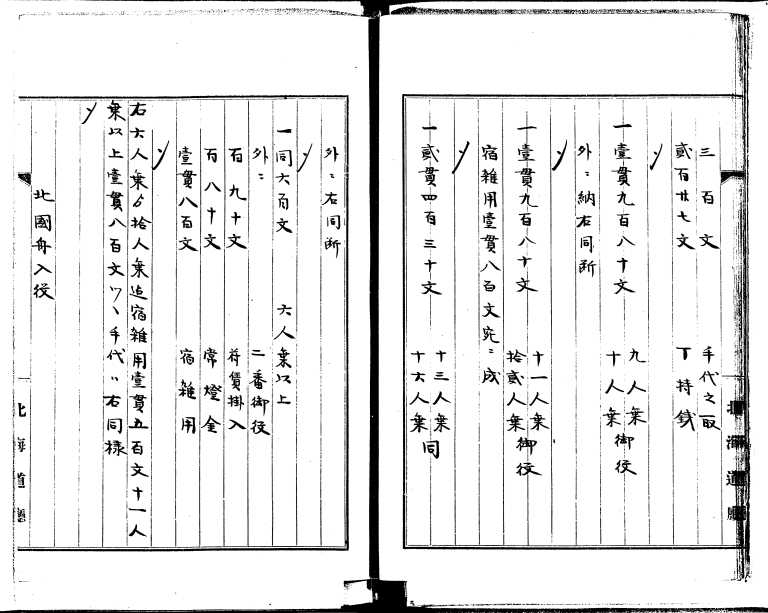 三百文 手代之取
貳百廿七文 丁持銭
〆
一壹貫九百八十文 九人乗 十人乗御役
外ニ納右同断
〆
一壹貫九百八十文 十一人乗 拾貳人乗御役
宿雑用壹貫八百文宛ニ成
〆
一貳貫四百三十文 十三人乗 十六人乗同
外ニ右同断
〆
一同六百文 六人乗以上
外ニ 二番御役
百九十文 荷賃掛入
百八十文 常燈金
壹貫八百文 宿雑用
〆
右六人乗ゟ拾人乗迄宿雑用壹貫五百文十一人
乗以上壹貫八百文ツヽ手代ハ右同様
〆
北國舟入役
北海道廳
北海道廳